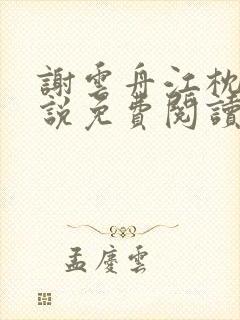 謝雲舟江枕
說免費閱讀
孟慶雲